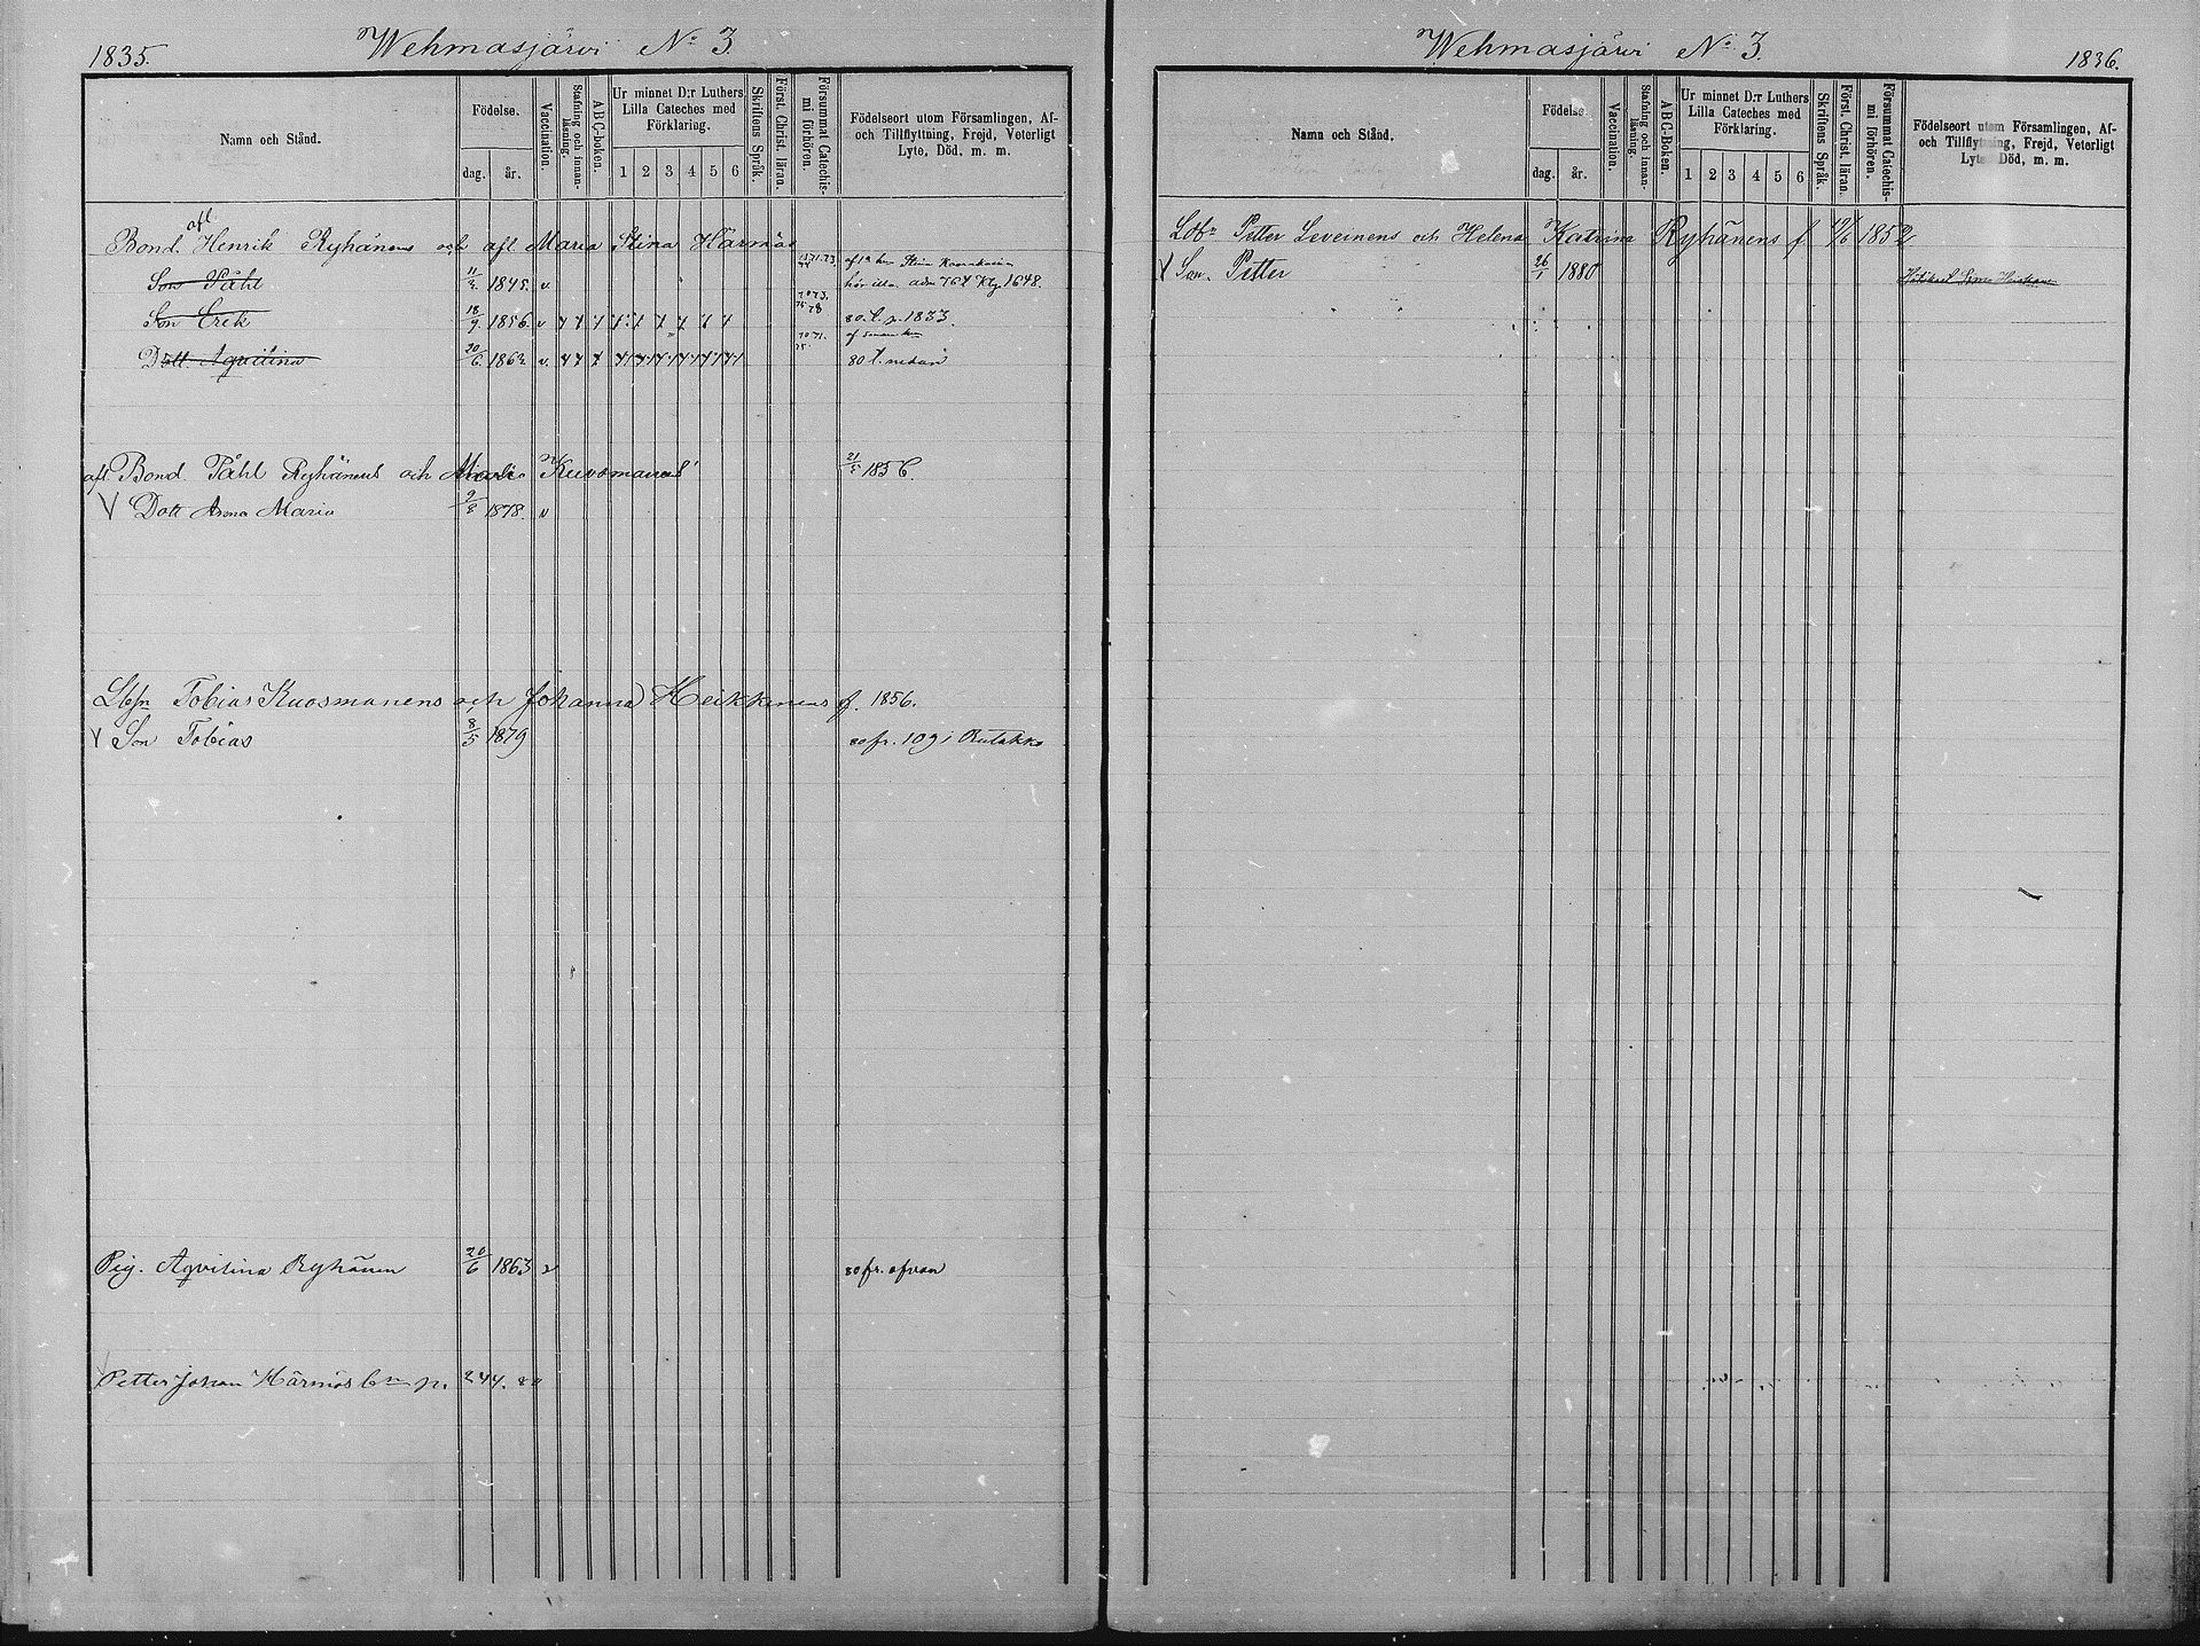 1835.
Wehmasjärvi No 3
Namn och Stånd.
Födelse.
dag. år.
Vaccination.
Stafning och innan-läsning.
ABC-boken.
Ur minnet D:r Luthers Lilla Cateches med Förklaring.
1 2 3 4 5 6
Skriftens Språk.
Först. Christ. läran.
Försummat Catechis-mi förhören.
Födelseort utom Församlingen, Af- och Tillflyttning, Frejd, Veterligt Lyte, Död, m. m.
Bond. afl. Henrik Ryhänens och afl. Maria Stina Härmäs
Son Påhl 11/2 1845. v
Son Erik 18/9. 1856. v 80. t. p. 1833.
Dott. Aqvilina 20/6. 1863. v. 80 t. nedan
afl Bond. Påhl Ryhänens och Maria Kuosmanens 21/5 1856.
V Dott Anna Maria 9/8 1878. v
Lbfn Tobias Kuosmanens och Johanna Heikkinens f. 1856.
V Son Tobias 8/5 1879 80 fr. 109 i Rutakko
Pig. Aqvilina Ryhänen 20/6 1863 v 80 fr. ofvan
Petter Johan Härmäs p. 244. 80
Wehmasjärvi No 3.
1836.
Namn och Stånd.
Födelse.
dag. år.
Vaccination.
Stafning och innan-läsning.
ABC-Boken.
Ur minnet D:r Luthers Lilla Cateches med Förklaring.
1 2 3 4 5 6
Skriftens Språk.
Först. Christ. läran.
Försummat Catechis-mi förhören.
Födelseort utom Församlingen, Af- och Tillflyttning, Frejd, Veterligt Lyte Död, m. m.
Petter Leveinens och Helena Katrina Ryhänens f 1852
V Son. Petter 26/1 1880